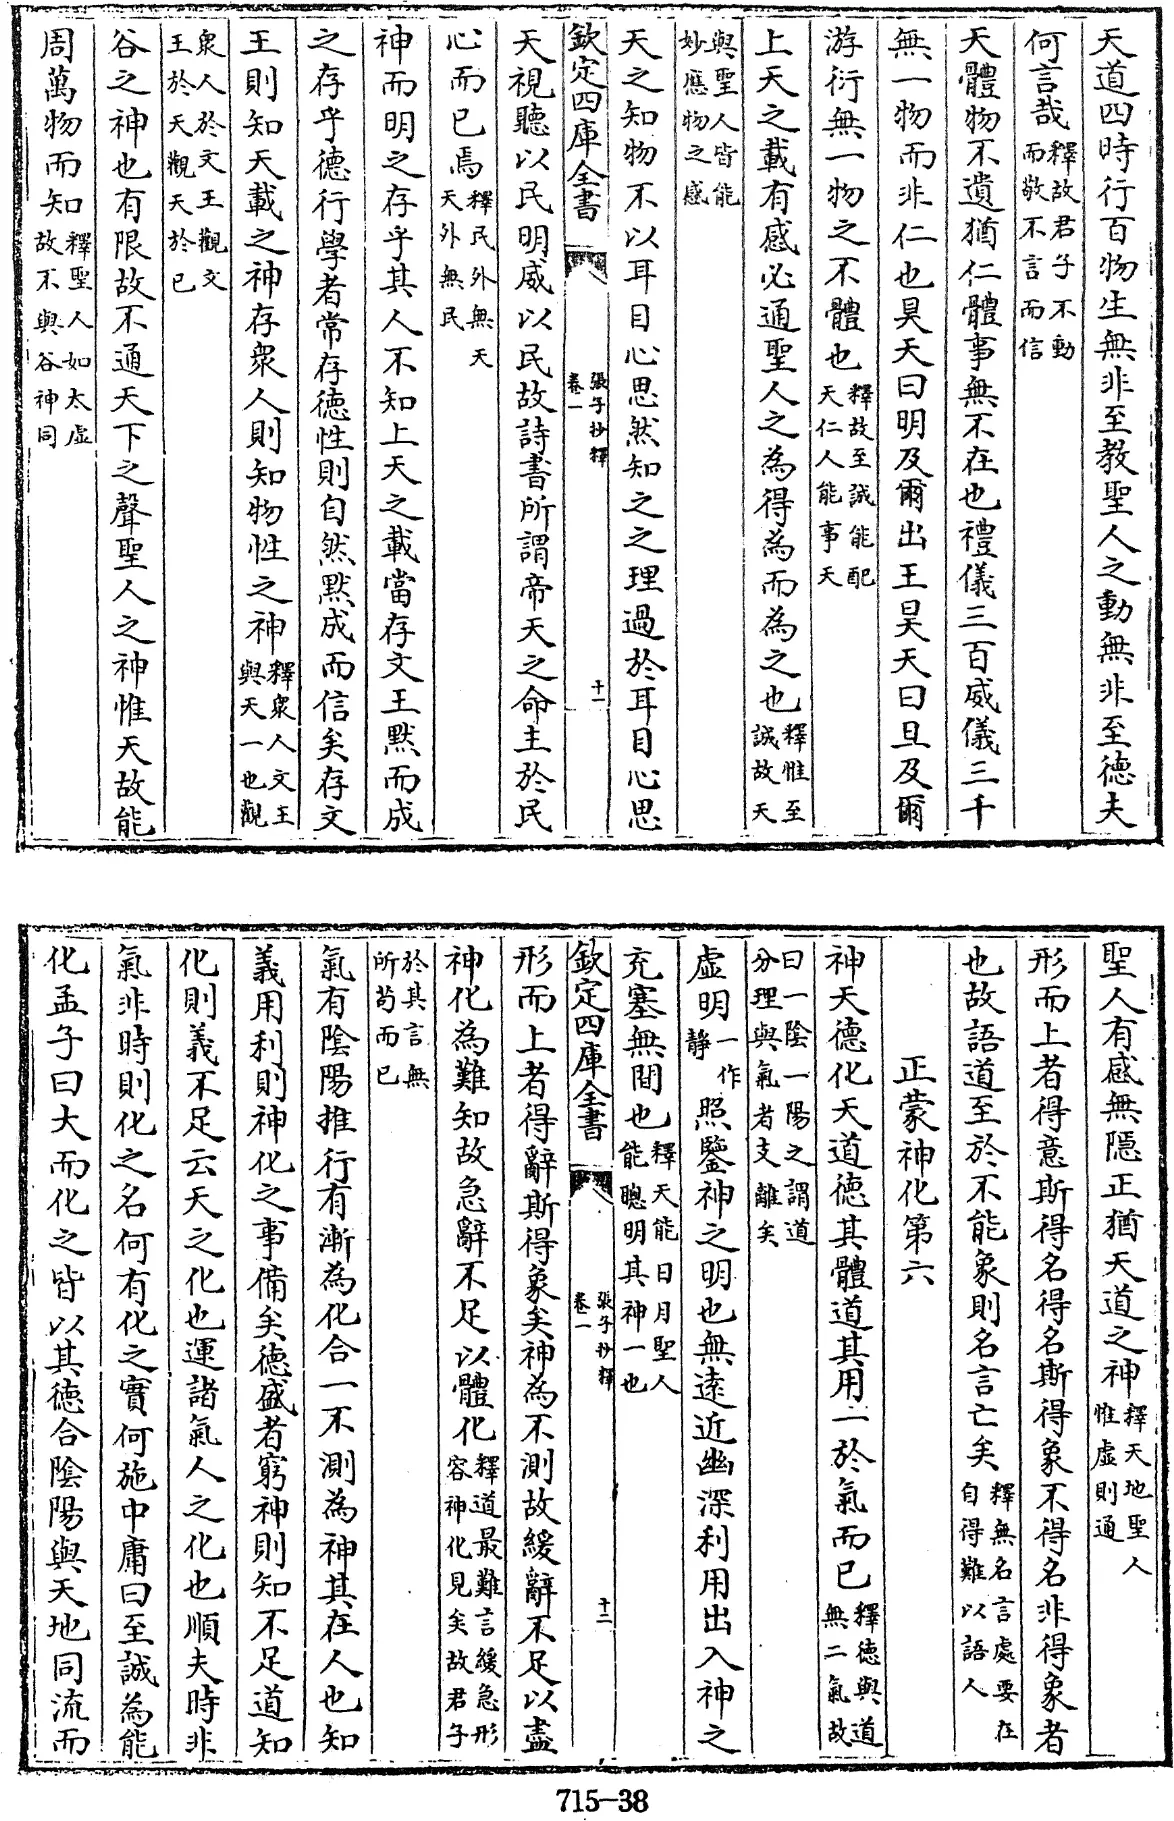 天道四時行百物生無非至教聖人之動無非至德夫
何言哉釋故君子不動而敬不言而信
天體物不遺猶仁體事無不在也禮儀三百威儀三千
無一物而非仁也昊天曰明及爾出王昊天曰旦及爾
游衍無一物之不體也釋故至誠能配天仁人能事天
上天之載有感必通聖人之為得為而為之也釋惟至誠故天
與聖人皆能妙應物之感
天之知物不以耳目心思然知之之理過於耳目心思
欽定四庫全書 張子抄釋 卷一 十一
天視聽以民明威以民故詩書所謂帝天之命主於民
心而已焉釋民外無天天外無民
神而明之存乎其人不知上天之載當存文王默而成
之存乎德行學者常存德性則自然默成而信矣存文
王則知天載之神存衆人則知物性之神釋衆人文王與天一也觀
衆人於文王觀文王於天觀天於已
谷之神也有限故不通天下之聲聖人之神惟天故能
周萬物而知釋聖人如太虛故不與谷神同
聖人有感無隱正猶天道之神釋天地聖人惟虛則通
形而上者得意斯得名得名斯得象不得名非得象者
也故語道至於不能象則名言亡矣釋無名言處要在自得難以語人
正蒙神化第六
神天德化天道德其體道其用一於氣而已釋德與道無二氣故
曰一陰一陽之謂道分理與氣者支離矣
虛明一作靜照鑒神之明也無遠近幽深利用出入神之
充塞無間也釋天能日月聖人能聰明其神一也
欽定四庫全書 張子抄釋 卷一 十二
形而上者得辭斯得象矣神為不測故緩辭不足以盡
神化為難知故急辭不足以體化釋道最難言緩急形容神化見矣故君子
於其言無所苟而已
氣有陰陽推行有漸為化合一不測為神其在人也知
義用利則神化之事備矣德盛者窮神則知不足道知
化則義不足云天之化也運諸氣人之化也順夫時非
氣非時則化之名何有化之實何施中庸曰至誠為能
化孟子曰大而化之皆以其德合陰陽與天地同流而
715-38